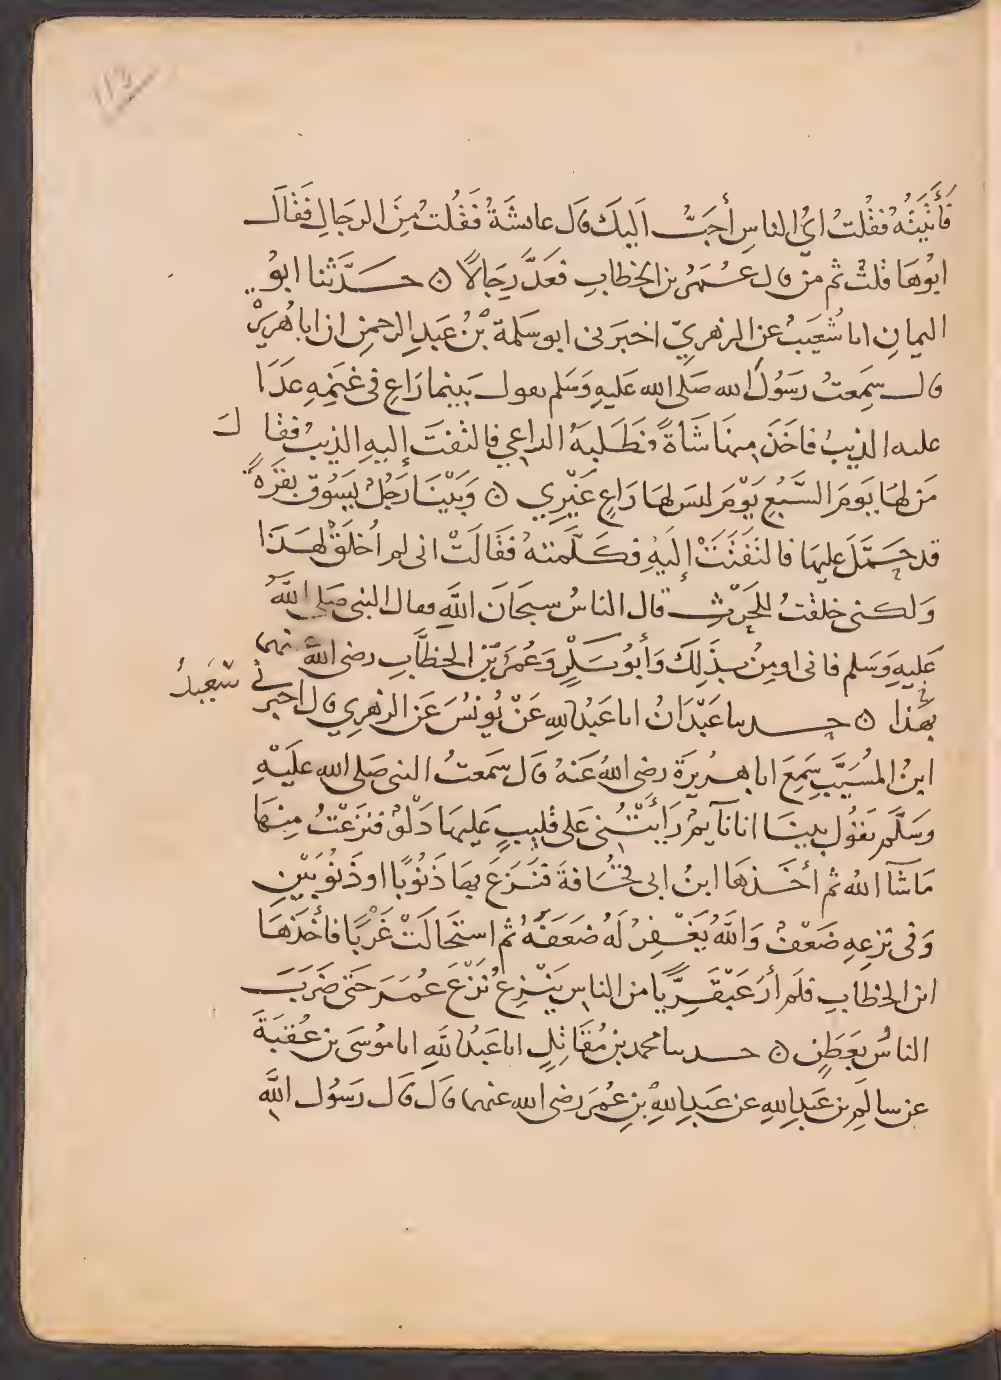 113
فَأَتَيتُهُ فَقُلتُ ايُّ الناسِ أحَبُّ اليكَ قال عايشَةُ فَقُلتُ مِنَ الرجَالِ فَقَالَ
ابُوهَا قلتُ ثم من قال عُمَرُ بن الخطابِ فَعَدَّ رِجَالًا ۞ حَدَّثنا ابوُ
اليمانِ انا شُعَيبُ عن الزهريّ اخبرَنى ابو سَلمة بْنُ عَبدِ الرحمنِ ان ابا هُريرْ
قال سَمِعتُ رسَوُلَ الله صَلى الله عَليهِ وَسَلم يقول بَينما رَاعٍ فى غنمِهِ عَدَا
عليه الذيبُ فاخَذَ منهَا شَاةً فطَلبهُ الراعِي فالتفتَ إليهِ الذيبُ فقَالَ
مَن لهَا يَومَ السَّبُعِ يَوْمَ ليسَ لهَا رَاعٍ غَيْرِي ۞ وَبَيْنَا رَجُلٌ يَسُوقُ بَقَرَةً
قد حَمَّلَ عليهَا فالتَفَتَتْ إليَهِ فكَلَّمتهُ فقَالَتْ انى لم اُخلَقْ لِهَذَا
وَلكنى خلقتُ لِلحَرْثِ قال الناسُ سبحَانَ اللَّهِ فقال النبى صَلى اللَّهُ
عَليهِ وَسَلم فانى اومِنُ بذَلِكَ وَأبوُ بَكرٍ وَعُمَرُ بْنُ الخطَّابِ رضى اللَّهُ عنهما
بهَذا ۞ حدثنا عَبْدَانُ انا عَبدُ اللهِ عَنْ يُونسُ عَنِ الزهرِي قال اخبرنى سَعِيدُ
ابنُ المُسَيَّبِ سَمِعَ ابا هريرَةَ رضى اللهُ عَنهُ قال سمعتُ النبى صَلى الله علَيْهِ
وَسَلَّم يَقوُل بينَا انا نآيمٌ رَأَيْتُنِى على قَليبٍ عَليهَا دَلْوٌ فنزعْتُ مِنهَا
مَا شآ اللهُ ثم أخَذهَا ابنُ ابى قحُافةَ فنَزعَ بهَا ذَنُوبًا اوذَنُوبَيْنِ
وَفى نزعِهِ ضَعْفٌ وَاللَّهُ يَغْفِرُ لَهُ ضَعَفَهُ ثم استحَالَتْ غَرْبًا فأخَذهَا
ابن الخطابِ فلَم أرَ عَبْقَرِيًّا من الناسِ يَنْزِعُ نَزْعَ عُمَرَ حَتى ضَرَبَ
الناسُ بعَطَنٍ ۞ حدثنا محمد بن مُقَاتِلٍ انا عَبدُ اللَّهِ انا مُوسَى بن عُقبَةَ
عن سَالمِ بن عَبدِ اللهِ عن عَبدِ اللهِ بنِ عُمَرَ رضى الله عنهما قال قال رَسوُل اللَّهِ